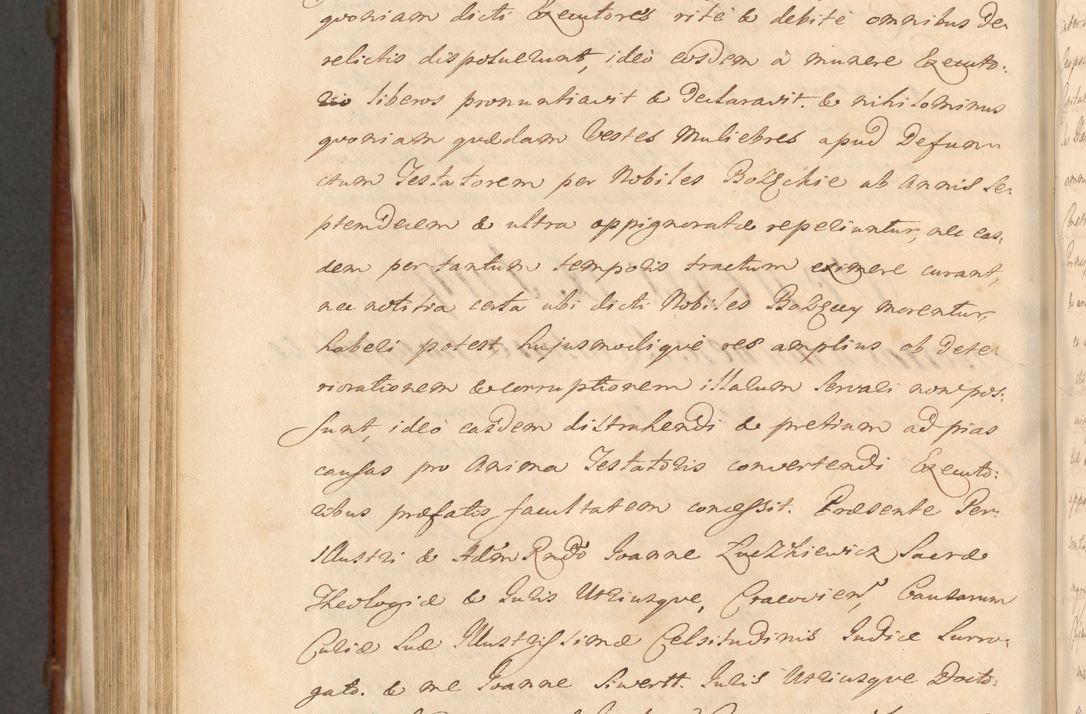 qvoniam dicti Executores rité & debité omnibus de-
relictis disposuerunt, ideo eosdem â munere Executo:
rio liberos pronuntiavit & declaravit. & nihilominus
qvoniam qvædam Vestes Muliebres apud Defun-
ctum Testatorem per Nobiles Bolgckie ab Annis Se-
ptemdecem & ultra oppignoratæ reperiuntur, nec eas-
dem per tantum temporis tractum eximere curant,
nec notitia certa ubi dicti Nobiles morentur,
haberi potest hujusmodiqve res amplius ob dete-
riorationem & corruptionem illarum servari non pos-
sunt, ideo easdem distrahendi & pretium ad pias
causas pro Anima Testatoris convertendi Executo:
ribus præfatis facultatem concessit. Præsente Per-
Illustri & Adm Rndo Joanne Luczkiewicz Sacræ
Theologiæ & Juris Utriusqve, Cracovien, Causarum
Curiæ Suæ Illustrissimæ Celsitudinis Judice Surro-
gato. & me Joanne Siwertt. Juris Utriusqve Docto-